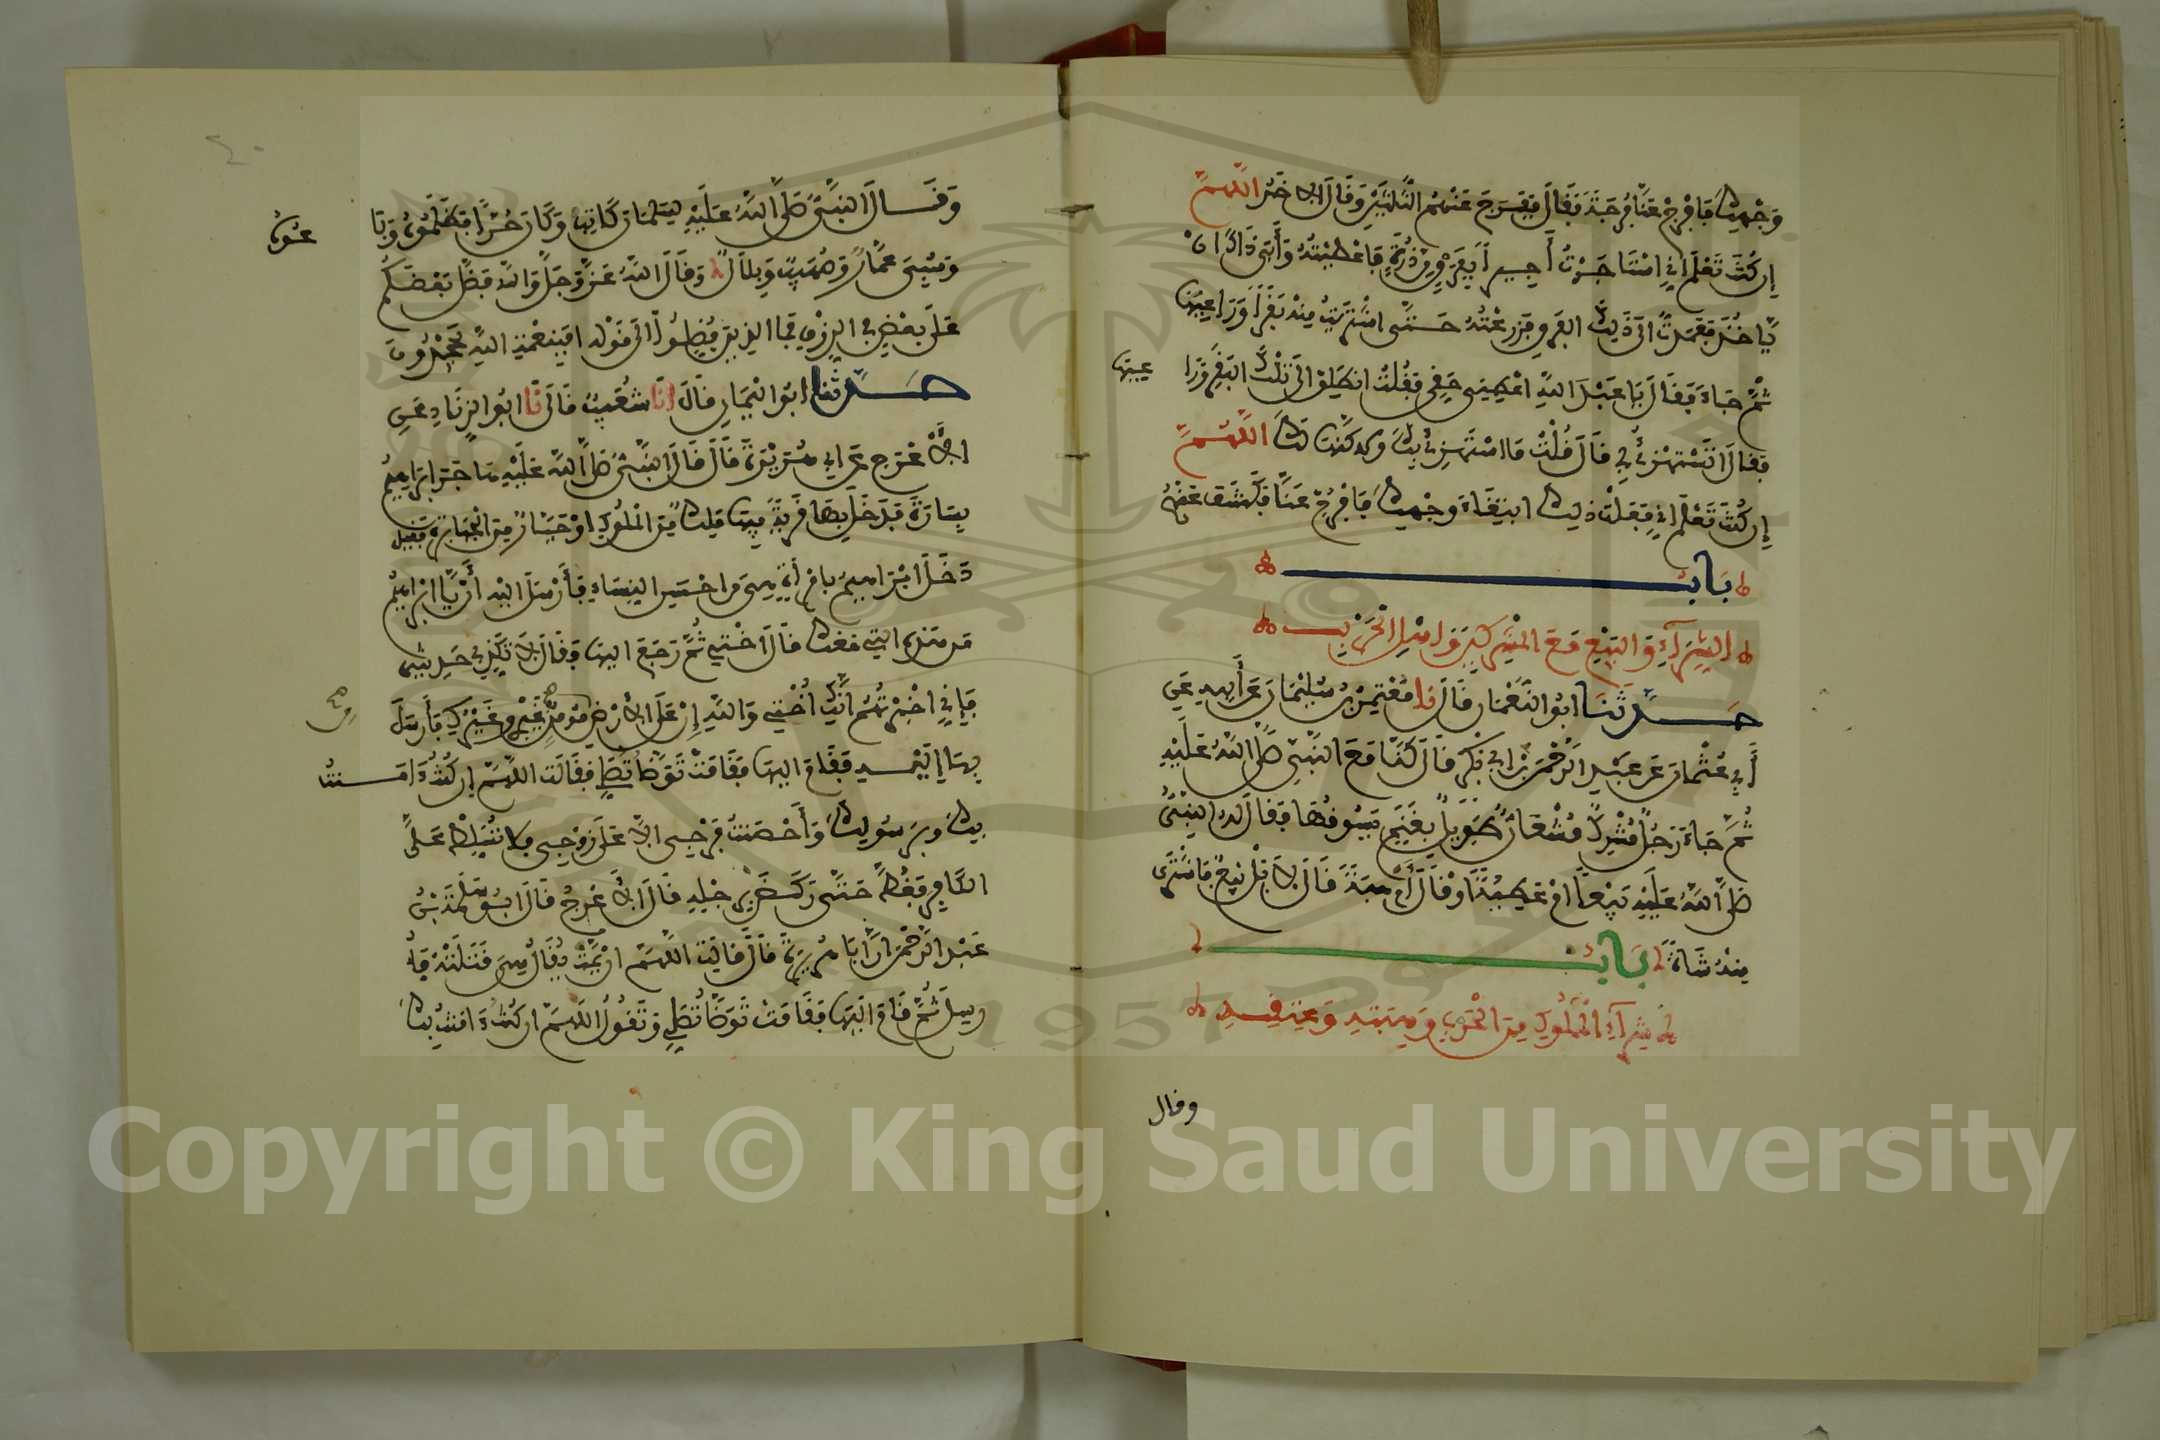 وَجْهِكَ فَافْرُجْ عَنَّا فُرْجَةً فَقَالَ فَفَرَجَ عَنْهُمُ الثُّلُثَيْنِ وَقَالَ الاخَرُ اللَّهُمَّ
إِن كُنْتَ تَعْلَمُ أَنِّي اسْتَاجَرْتُ أَجِيراً بِفَرَقٍ مِن ذُرَةٍ فَأَعْطَيْتُهُ وَأَبَى ذَاكَ انْ
يَّاخُذَ فَعَمَدتُّ الَى ذَلِكَ الفَرَقِ فَزَرَعْتُهُ حَتَّى اشْتَرَيْتُ مِنْهُ بَقَراً وَرَاعِيَهَا
ثُمَّ جَاءَ فَقَالَ يَا عَبْدَ اللَّهِ اعْطِينِي حَقِّي فَقُلْتُ انطَلِقْ الَى تِلْكَ البَقَرِ وَرَا عِيهَا
فَقَالَ اتَسْتَهْزِئُ بِي قَالَ قُلْتُ مَا اسْتَهْزِئُ بِكَ وَلَكِنَّهَا لَكَ اللَّهُمَّ
إِن كُنْتَ تَعْلَمُ أَنِّي فَعَلْتُ ذَلِكَ ابْتِغَاءَ وَجْهِكَ فَافْرُجْ عَنَّا فَكُشِفَ عَنْهُمْ
بَابُ
الشِّرَاءِ وَالبَيْعِ مَعَ المُشْرِكِينَ وَاهْلِ الحَرْبِ
حَدَّثَنَا ابُو النُّعْمَانِ قَالَ نا مُعْتَمِرُ بْنُ سُلَيْمَانَ عَن أَبِيهِ عَن
أَبِي عُثْمَانَ عَن عَبْدِ الرَّحْمَنِ بْنِ ابِي بَكْرٍ قَالَ كُنَّا مَعَ النَّبِيِّ صَلَّى اللَّهُ عَلَيْهِ
ثُمَّ جَاءَ رَجُلٌ مُشْرِكٌ مُشْعَانٌّ طَوِيلٌ بِغَنَمٍ يَسُوقُهَا فَقَالَ لَهُ النَّبِيُّ
صَلَّى اللَّهُ عَلَيْهِ بَيْعاً امْ عَطِيَّةً اوْ قَالَ أَمْ هِبَةً قَالَ لاَ بَلْ بَيْعٌ فَاشْتَرَى
مِنْهُ شَاةً بَابُ
شِرَاءِ المَمْلُوكِ مِنَ الحَرْبِيِّ وَهِبَتِهِ وَعِتْقِهِ
وقال
وَقَالَ النَّبِيُّ صَلَّى اللَّهُ عَلَيْهِ لِسَلْمَانَ كَاتِبْ وَكَانَ حُرّاً فَظَلَمُوهُ وَبَا عُوهُ
وَسُبِيَ عَمَّارٌ وَصُهَيْبٌ وَبِلاَلٌ وَقَالَ اللَّهُ عَزَّ وَجَلَّ وَاللَّهُ فَضَّلَ بَعْضَكُمْ
عَلَى بَعْضٍ فِي الرِّزْقِ فَمَا الذِينَ فُضِّلُوا الَى قَوْلِهِ افَبِنِعْمَةِ اللَّهِ تَجْحَدُونَ
حَدَّثَنَا ابُو اليَمَانِ قَالَ انَا شُعَيْبٌ قَالَ نَا ابُو الزِّنَادِ عَنِ
الاَعْرَجِ عَن ابِي هُرَيْرَةَ قَالَ قَالَ النَّبِيُّ صَلَّى اللَّهُ عَلَيْهِ هَاجَرَ ابْرَاهِيمُ
بِسَارَةَ فَدَخَلَ بِهَا قَرْيَةً فِيهَا مَلِكٌ مِّنَ المُلُوكِ اوْ جَبَّارٌ مِّنَ الجَبَابِرَةِ فَقِيلَ
دَخَلَ ابْرَاهِيمُ بِامْرَأَةٍ هِيَ مِن احْسَنِ النِّسَاءِ فَأَرْسَلَ الَيْهِ أَنْ يَّا ابْرَاهِيمُ
مَن هَذِهِ التِي مَعَكَ قَالَ اخْتِي ثُمَّ رَجَعَ الَيْهَا فَقَالَ لاَ تُكَذِّبِي حَدِيثِي
فَإِنِّي اخْبَرْتُهُمُ أَنَّكِ اُخْتِي وَاللَّهِ إِنْ عَلَى الاَرْضِ مُؤْمِنٌ غَيْرِي وَغَيْرُكِ فَأَرْسَلَ
بِهَا إِلَيْهِ فَقَامَ الَيْهَا فَقَامَتْ تَوَضَّأُ تُصَلِّي فَقَالَت اللَّهُمَّ إِن كُنْتُ ءَامَنْتُ
بِكَ وَبِرَسُولِكَ وَأَحْصَنْتُ فَرْجِي الاَّ عَلَى زَوْجِي فَلاَ تُسَلِّطْ عَلَيَّ
الكَافِرَ فَغُطَّ حَتَّى رَكَضَ بِرِجْلِهِ قَالَ الاَعْرَجُ قَالَ ابُو سَلَمَةَ بْنُ
عَبْدِ الرَّحْمَنِ انَّ ابَا هُرَيْرَةَ قَالَ قَالَت اللَّهُمَّ ان يَّمُتْ يُقَالُ هِيَ قَتَلَتْهُ فَأُ
رْسِلَ ثُمَّ قَامَ الَيْهَا فَقَامَتْ تَوَضَّأُ تُصَلِّي وَتَقُولُ اللَّهُمَّ ان كُنْتُ ءَامَنْتُ بِكَ
٤٠
1957
Copyright © King Saud University